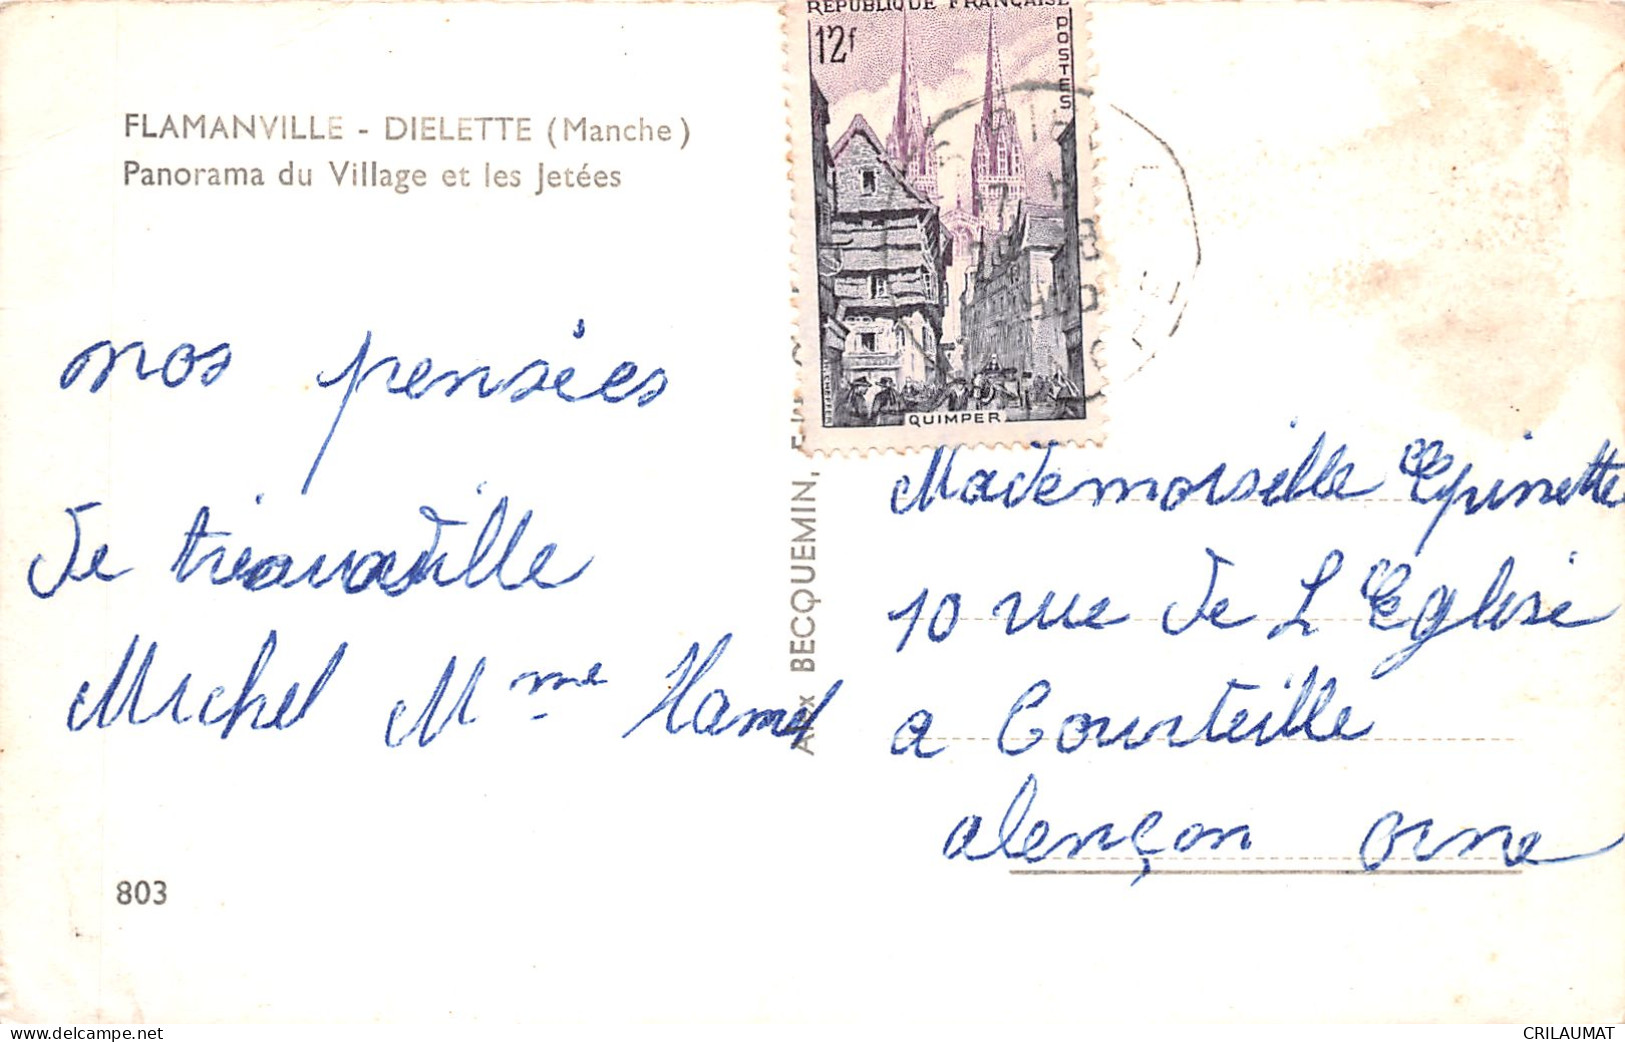 FLAMANVILLE - DIELETTE (Manche)
Panorama du Village et les Jetées
nos pensées
de
Michel Mme Hamel
803
Alix BECQUEMIN,
RÉPUBLIQUE FRANÇAISE
POSTES
12f
QUIMPER
17 H
Mademoiselle Epinette
10 rue de L'Eglise
a Courteille
alençon orne
delcampe.net
CRILAUMAT